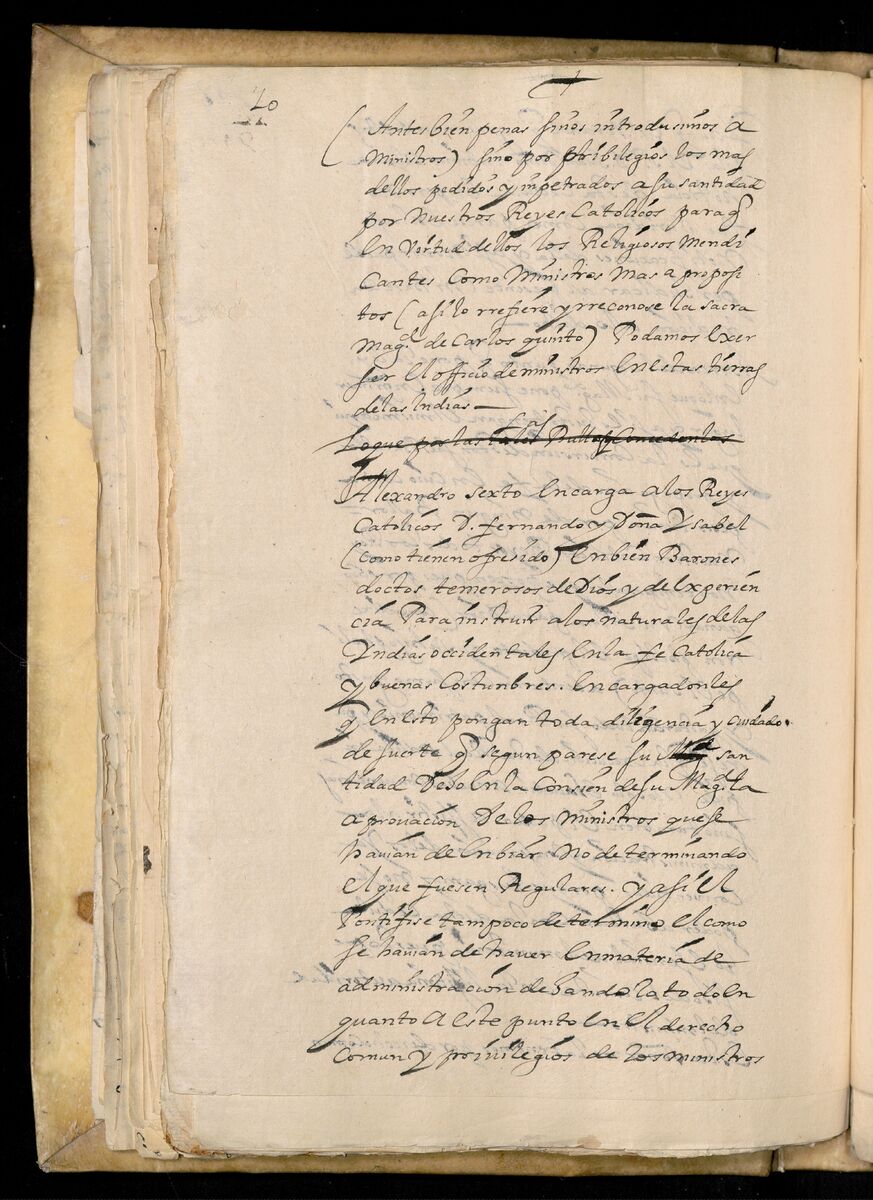 20
( Antes bien penas si nos introdusimos a
Ministros) sino por pribilegios los mas
dellos pedidos y inpetrados a su santidad
por Nuestros Reyes Catolicos para q
En Virtud dellos los Religiosos Mendi
Cantes Como Ministros Mas a proposi
tos (asi lo rrefiere y rreconose la sacra
Magd. de Carlos quinto) Podamos Exer
ser El officio de ministros En Estas tierras
de las Indias
Lo que por las tales Bullas Conceden los
Alexandro sexto Encarga a los Reyes
Catolicos D. fernando y Doña Ysabel
(como tienen ofresido) Enbien Barones
doctos temerosos de Dios y de Experien
cia Para instruir a los naturales de las
Yndias occidentales En la fe Catolica
y buenas Costunbres. Encargadonles
q En Esto pongan toda diligencia y Cuidado.
de suerte q segun parese su san
tidad Dexo En la Consien de su Magd. la
aprouacion De los Ministros que se
havian de Enbiar No determinando
El que fuesen Regulares. y asi El
Pontifise tampoco determino El como
se havian de haver En materia de
administracion dexandola todo En
quanto a Este punto En El derecho
Comun y priuilegios de los ministros